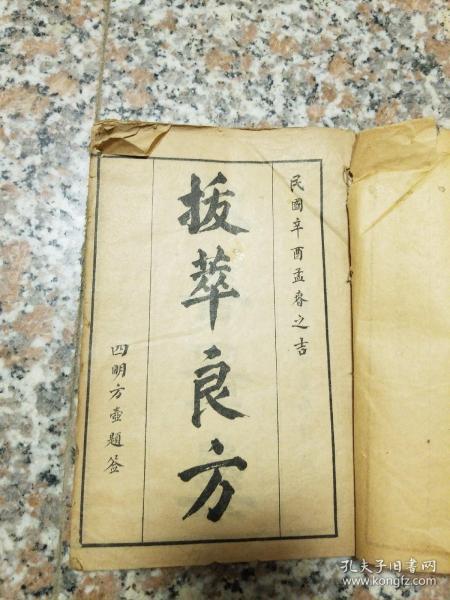 民國辛酉孟春之吉
拔萃良方
四明方壺題簽
孔夫子旧书网
www.kongfz.com